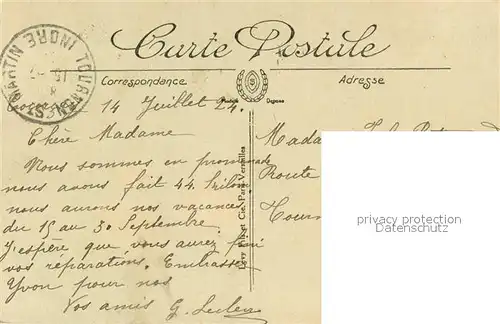 Carte Postale
Correspondance
Adresse
14 Juillet 24.
Chère Madame
Nous sommes en promenade
nous avons fait 44 Kilom
nous aurons nos vacances
du 15 au 30 Septembre.
J'espère que vous aurez fini
vos réparations. Embrassez
Yvon pour nos
Vos amis G. Leclerc
Lévy Fils et Cie, Paris-Versailles
TOURNON ST MARTIN INDRE
Madame
Route
Tourn
privacy protection
ansichtskarten-center.de